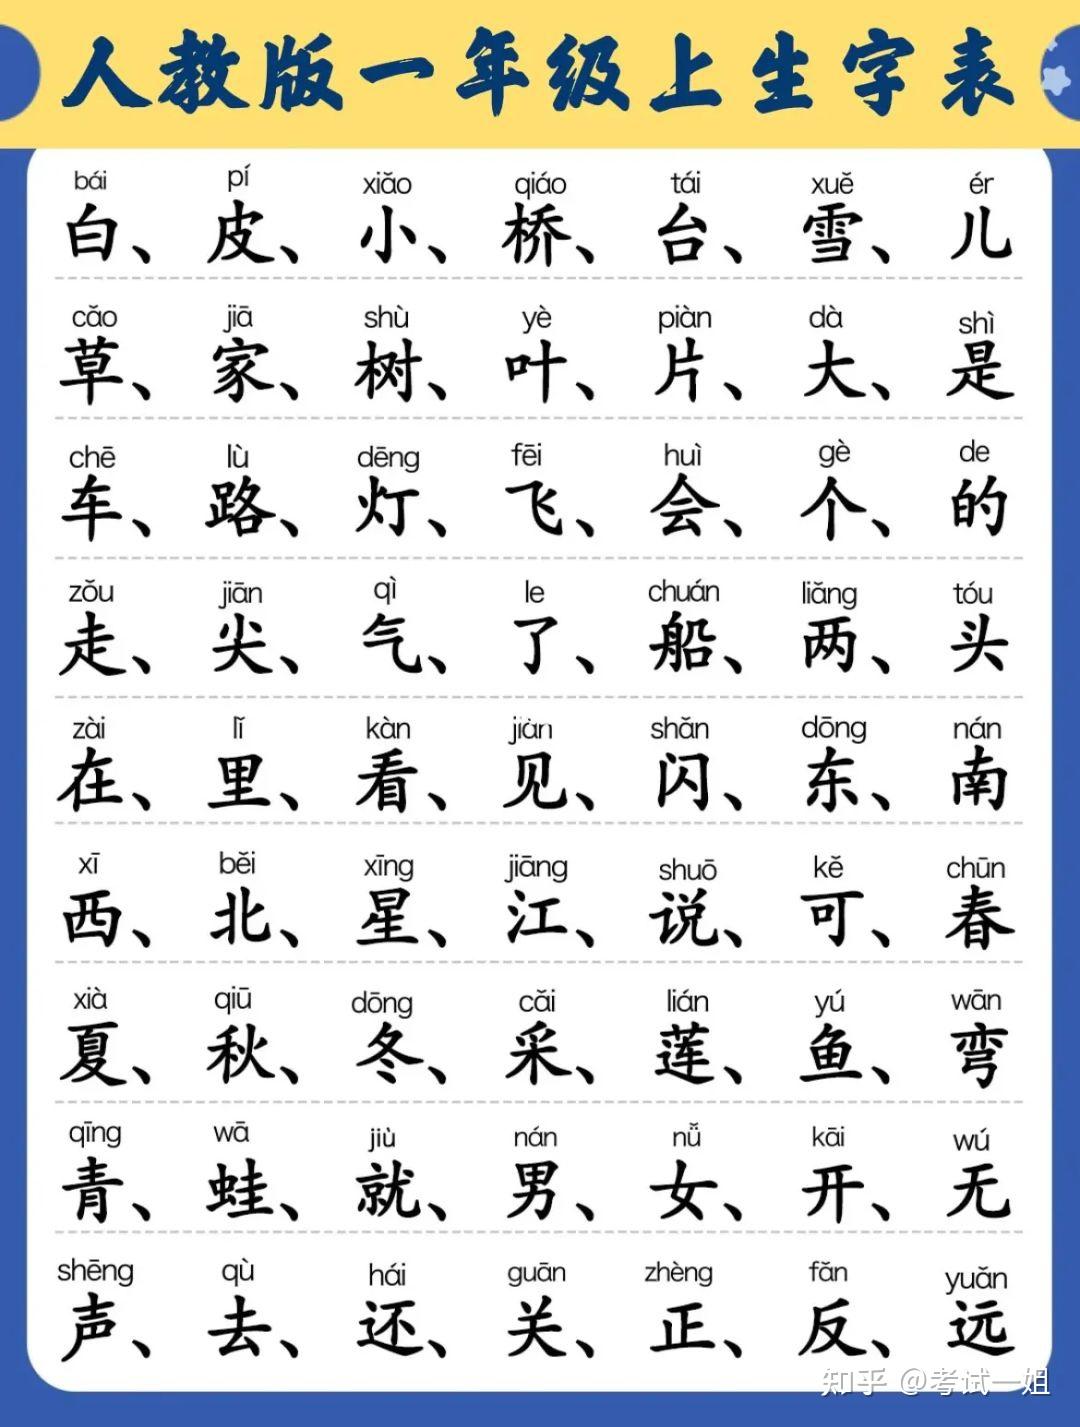 人教版一年级上生字表
bái pí xiǎo qiáo tái xuě ér
白、皮、小、桥、台、雪、儿
cǎo jiā shù yè piàn dà shì
草、家、树、叶、片、大、是
chē lù dēng fēi huì gè de
车、路、灯、飞、会、个、的
zǒu jiān qì le chuán liǎng tóu
走、尖、气、了、船、两、头
zài lǐ kàn jiàn shǎn dōng nán
在、里、看、见、闪、东、南
xī běi xīng jiāng shuō kě chūn
西、北、星、江、说、可、春
xià qiū dōng cǎi lián yú wān
夏、秋、冬、采、莲、鱼、弯
qīng wā jiù nán nǚ kāi wú
青、蛙、就、男、女、开、无
shēng qù hái guān zhèng fǎn yuǎn
声、去、还、关、正、反、远
知乎 @考试一姐